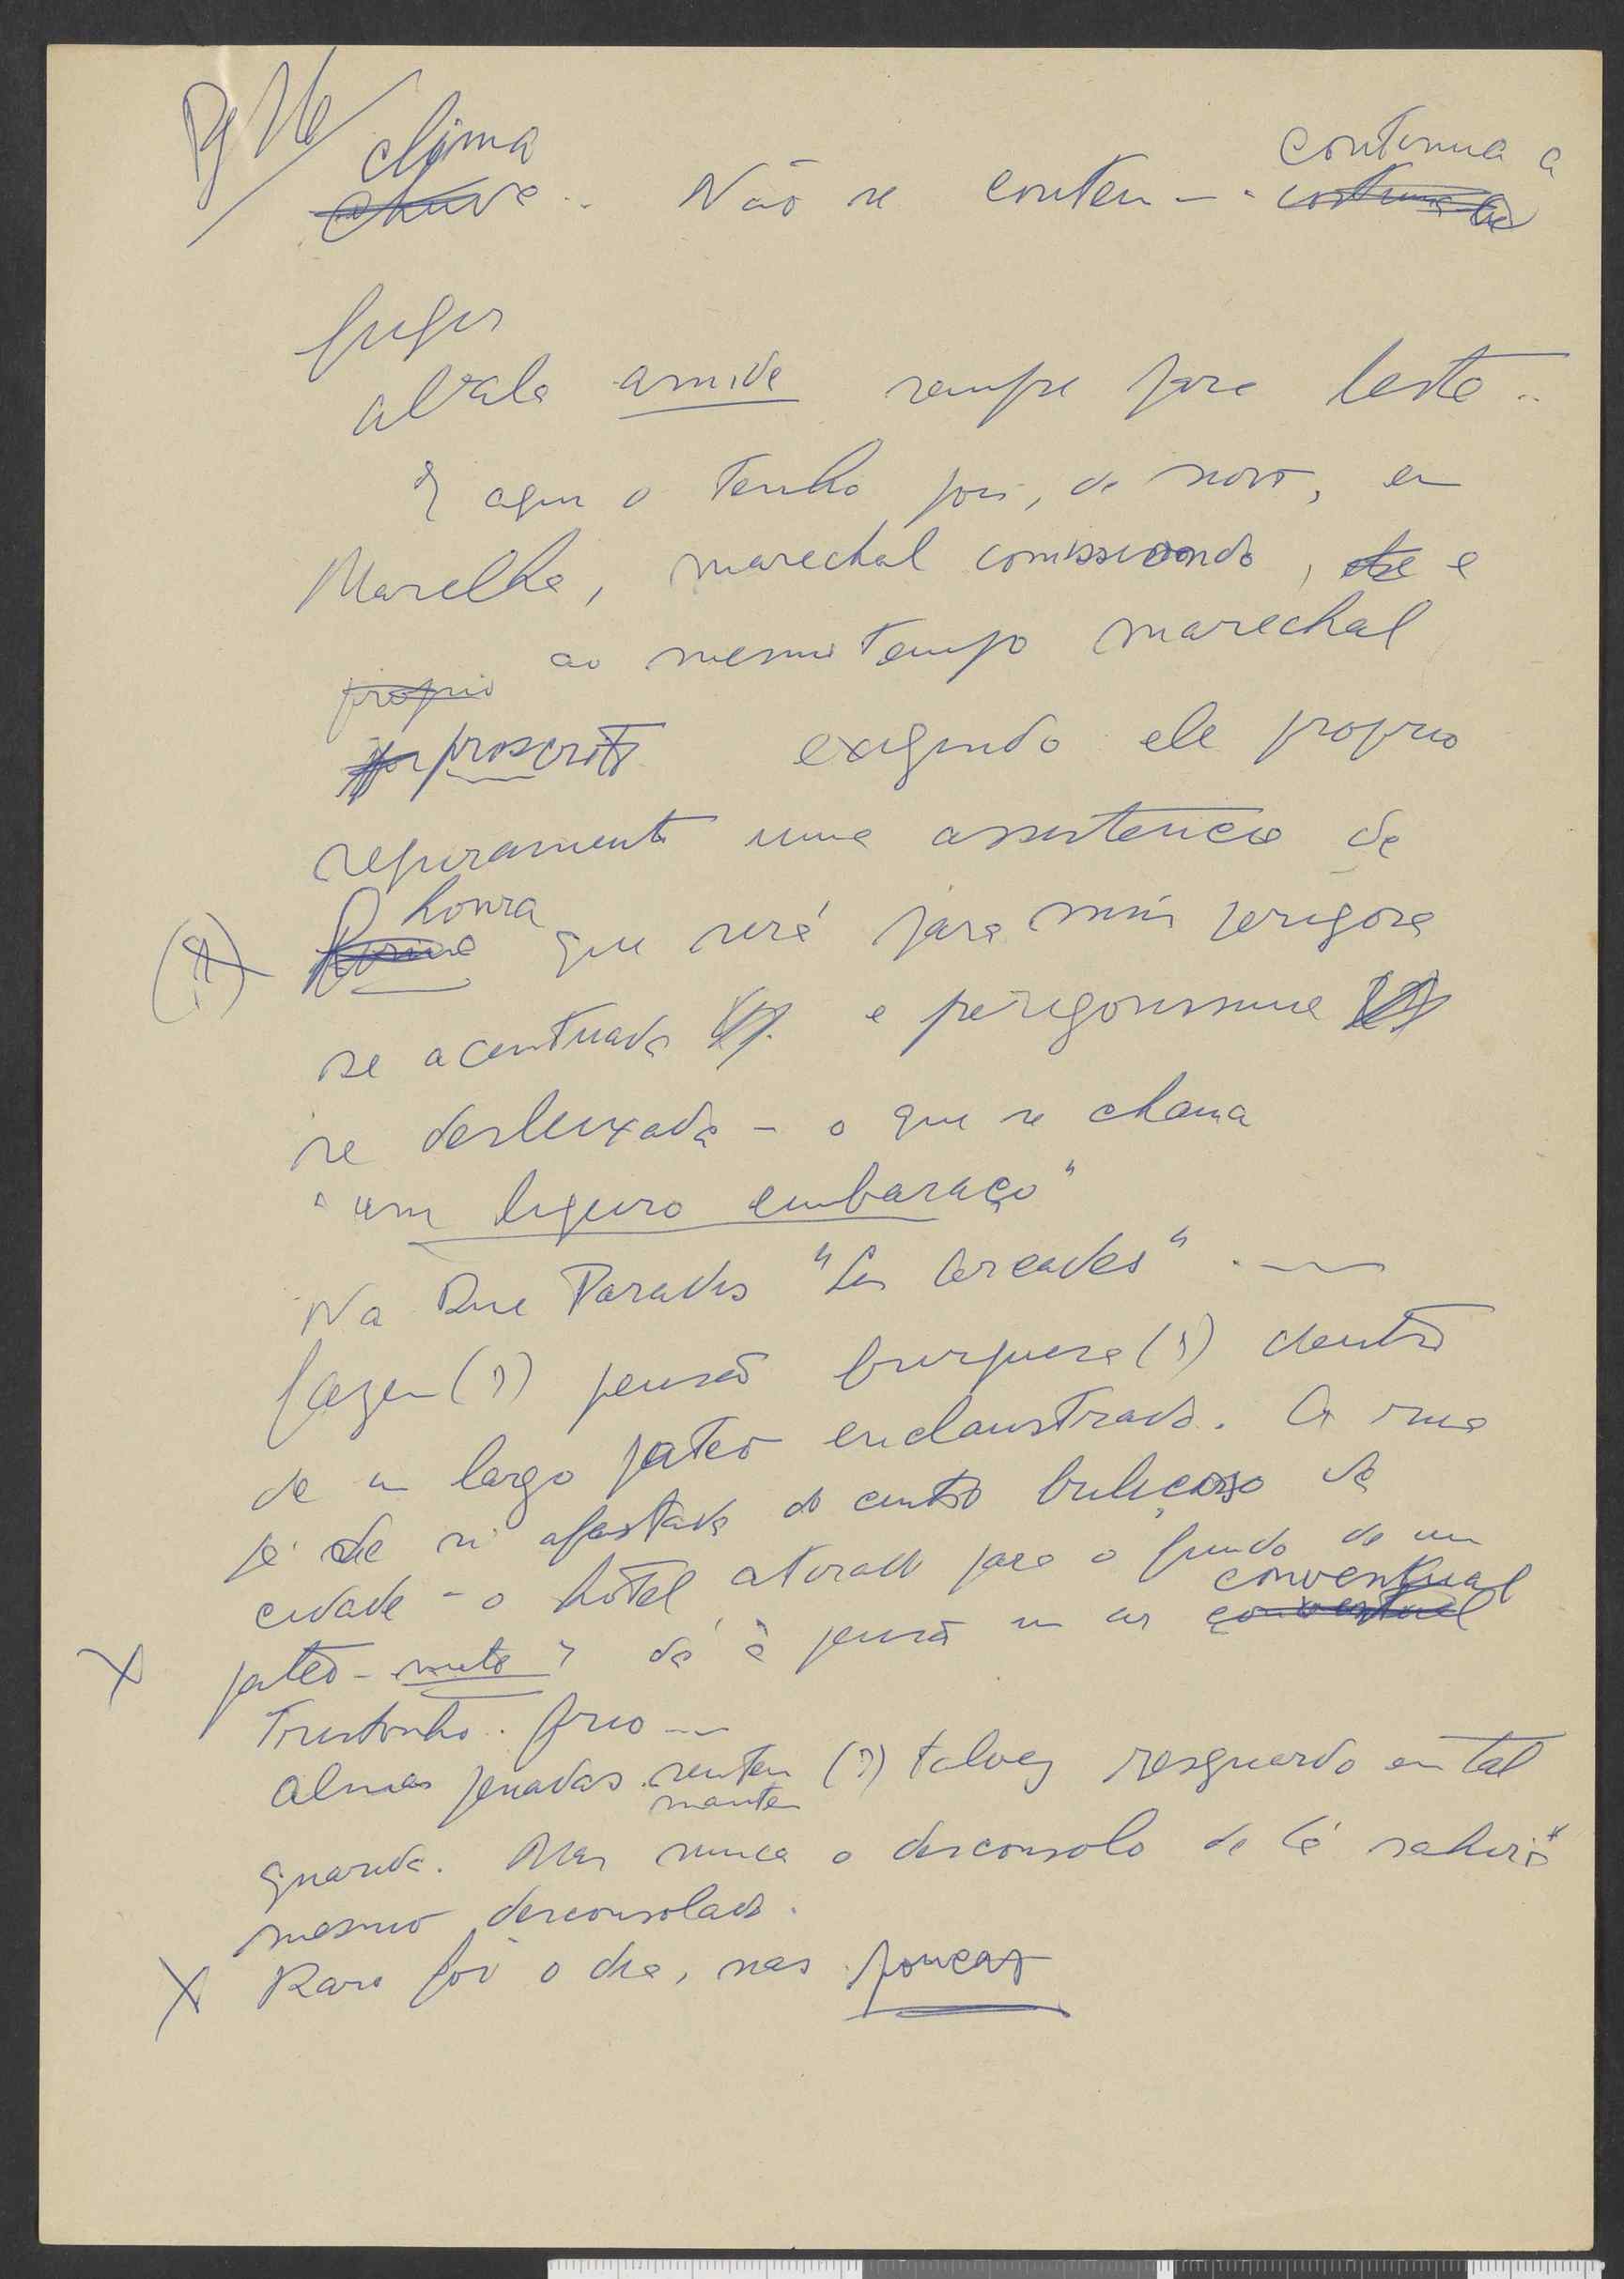 Pg 16
clima continua a
chuva .. Não se contem - . costuma
fugir
abala amide sempre para leste ..
E aqui o tenho pois, de novo, em
Marselha, marechal comissionado, e
ao mesmo tempo marechal
proprio
proscrito exigindo ele proprio
seguramente uma assistencia de
honra
(?) que será para mim perigosa
se acentuada e perigosissima
se desleixada - o que se chama
"um ligeiro embaraço"
Na Rue Paradis "Les Arcades" . —
fazem (?) pensão burguesa (?) dentro
de um largo pateo enclaustrado. A rua
já de si afastada do centro buliçoso da
cidade - o hotel atirado para o fundo de um
conventual
X pateo - mudo ? dá à pensão um ar conventual
Tristonho . frio —
almas penadas sentem (?) talvez resguardo em tal
mantem
guarida. Mas nunca o desconsolo de lá sahir *
mesmo desconsolado.
X Raro foi o dia, nas poucas